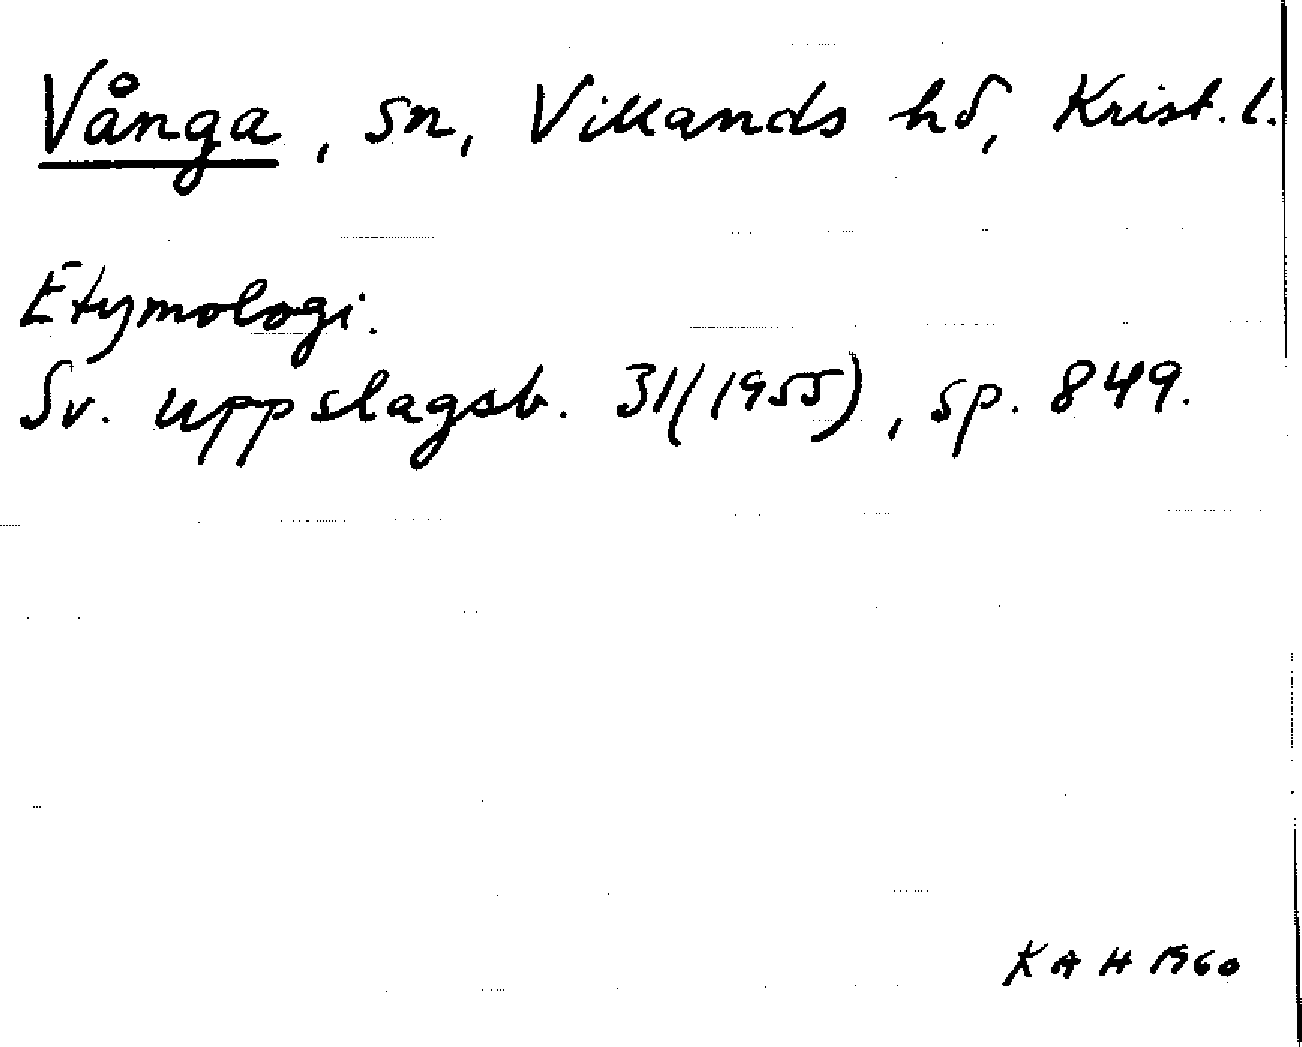 Vånga, sn, Villands hd, Krist. l.
Etymologi.
Sv. uppslagsb. 31(1955), sp. 849.
K A H 1960